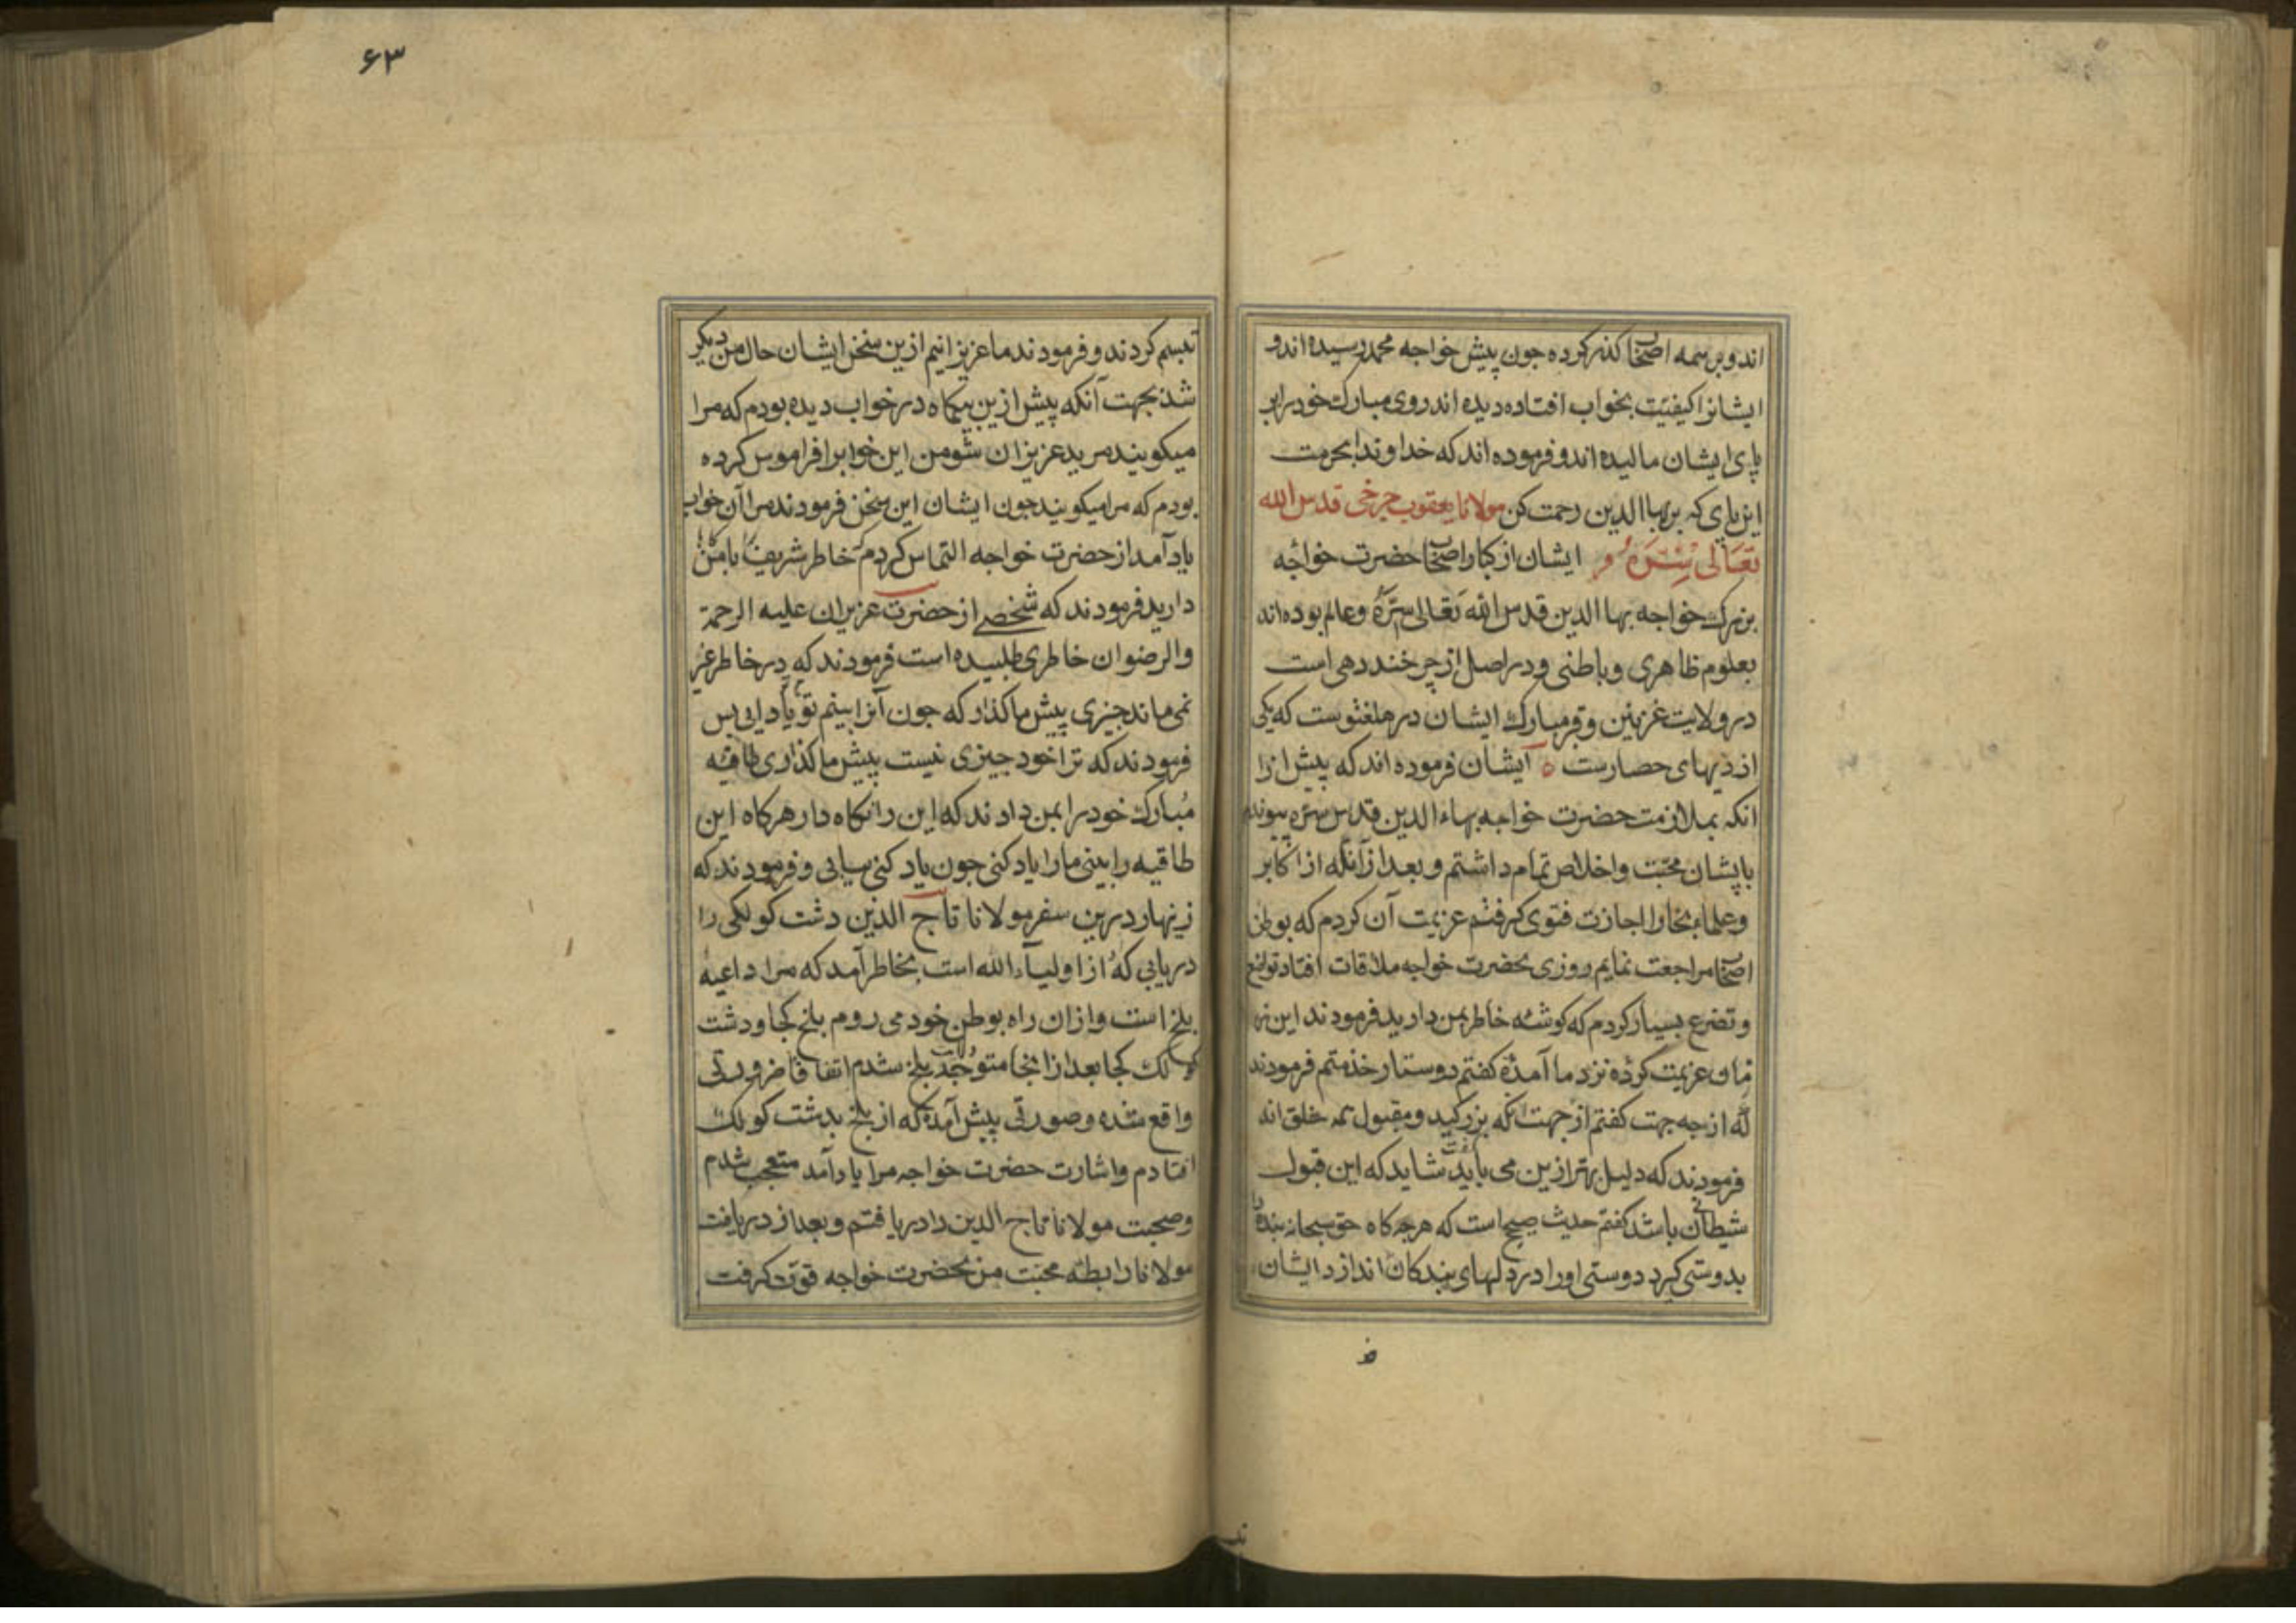 اند و بر همه اصحاب گذر کرده جون پیش خواجه محمد رسیده اند و
ایشانرا کیفیت بخواب افتاده دیده اند روی مبارک خود را بر
پای ایشان مالیده اند و فرموده اند که خداوندا بحرمت
این پای که بر بهاالدین رحمت کن مولانا یعقوب جرخی قدس الله
تعالی سره ایشان از کبار اصحاب حضرت خواجه
بزرک خواجه بها الدین قدس الله تعالی سره و عالم بوده اند
بعلوم ظاهری و باطنی و در اصل از چرخند دهی است
در ولایت غزنین و قبر مبارک ایشان در هلغتوست که یکی
از دیهای حصارست ایشان فرموده اند که پیش از
انکه بملازمت حضرت خواجه بهاء الدین قدس سره پیوندم
بایشان محبت و اخلاص تمام داشتم و بعد از آنکه از اکابر
و علماء بخارا اجازت فتوی کرفتم عزیمت آن کردم که بوطن
مراجعت نمایم روزی بحضرت خواجه ملاقات افتاد تواضع
و تضرع بسیار کردم که کوشه خاطر بمن دارید فرمودند این
عزیمت کرده نزد ما آمدهٔ کفتم دوستار خذمتم فرمودند
که از جه جهت کفتم از جهت آنکه بزرکید و مقبول همه خلق اند
فرمودند که دلیل بهتر ازین می باید کفت شاید که این قبول
شیطانی باشد کفتم حدیث صحیح است که هرجه کاه حق سبحانه بنده را
بدوستی کیرد دوستی او را در دلهای بندکان اندازد ایشان
۶۳
تبسم کردند و فرمودند ما عزیزانیم ازین سخن ایشان حال من دیکر
شد بجهت آنکه پیش ازین بیکماه در خواب دیده بودم که مرا
میکویند مرید عزیزان شو من این خوابرا فراموس کرده
بودم که مرا میکویند جون ایشان این سخن فرمودند مرا آن خواب
یاد آمد از حضرت خواجه التماس کردم که خاطر شریف با من
دارید فرمودند که شخصی از حضرت عزیزان علیه الرحمة
والرضوان خاطری طلبیده است فرمودند که در خاطر غیر
نمی ماند جیزی پیش ما کذار که جون آنرا بینم تو یاد ایی پس
فرمودند که ترا خود جیزی نیست پیش ما کذاری طاقیه
مبارک خود را بمن دادند که این را نکاه دار هرکاه این
طاقیه را بینی ما را یاد کنی جون یاد کنی بیابی و فرمودند که
زینهار درین سفر مولانا تاج الدین دشت کولکی را
دریابی که از اولیاء الله است بخاطر آمد که مرا داعیه
بلخ است و از ان راه بوطن خود می روم بلخ کجا و دشت
کولک کجا بعد از انجا متوجه ولایت بلخ شدم اتفاقا ضرورتی
واقع شده و صورتی پیش آمده که از بلخ بدشت کولک
افتادم و اشارت حضرت خواجه مرا یاد آمد متعجب شدم
و صحبت مولانا تاج الدین را دریافتم و بعد از دریافت
مولانا رابطه محبت من بحضرت خواجه قوت کرفت